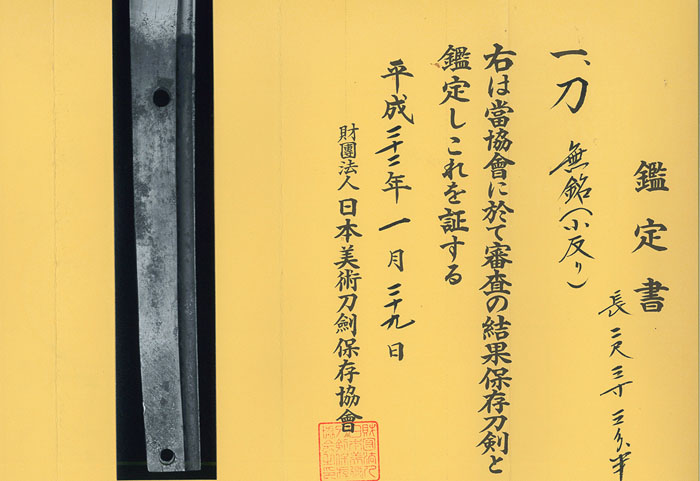 鑑定書
長二尺三寸五分半
一、刀 無銘(小反り)
右は當協會に於て審査の結果保存刀剣と
鑑定しこれを証する
平成二十二年一月二十九日
財團法人日本美術刀劍保存協會